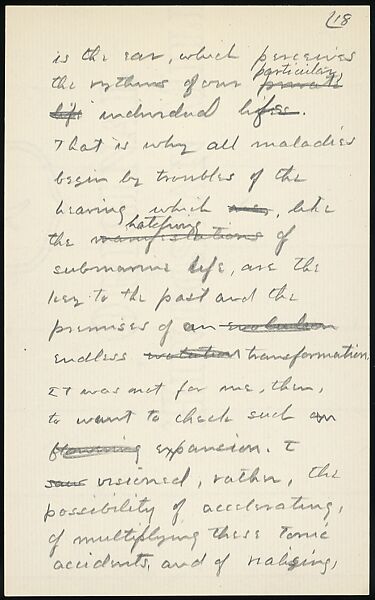 18
is the ear, which perceives
the rythms of our particular private
life individual lifes.
That is why all maladies
begin by troubles of the
hearing which are, like
the hatefring manifestations of
submarine life, are the
key to the past and the
premises of an evolution
endless mutation transformation.
It was not for me, then,
to want to check such an
flowering expansion. I
saw visioned, rather, the
possibility of accelerating,
of multiplying these tonic
accidents, and of realizing,